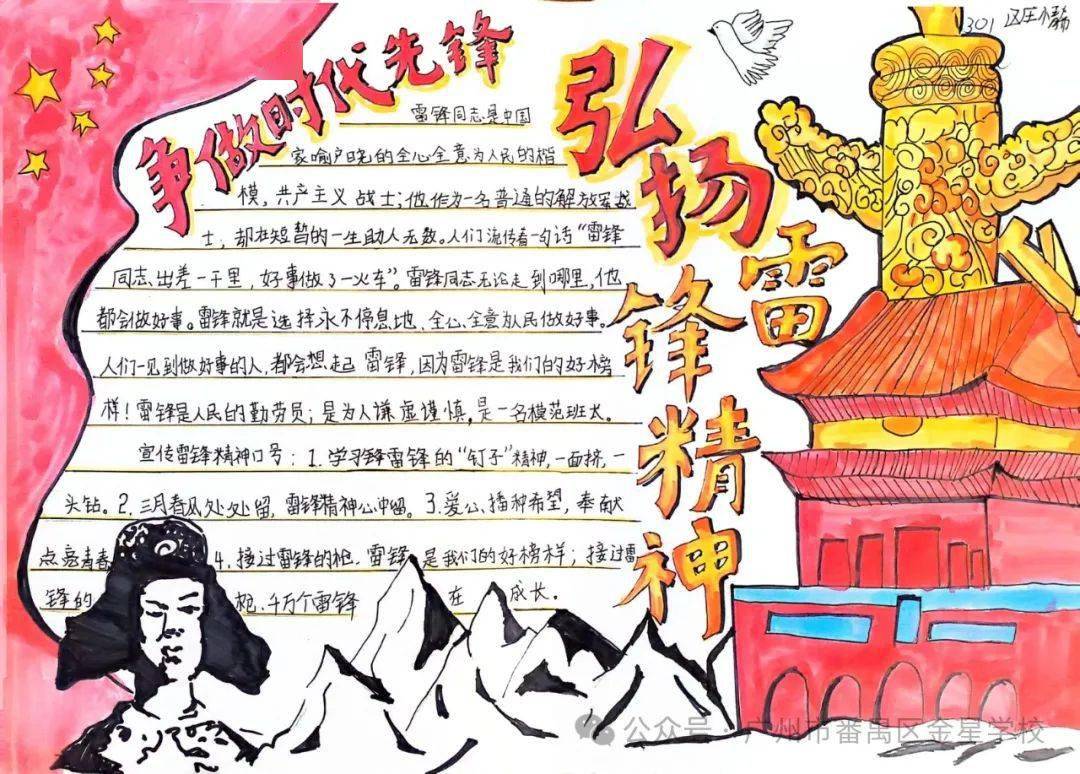 301
争做时代先锋
弘扬雷锋精神
雷锋同志是中国
家喻户晓的全心全意为人民的楷
模,共产主义战士;他作为一名普通的解放军战
士,却在短暂的一生助人无数。人们流传着一句话“雷锋
同志出差一千里,好事做了一火车”。雷锋同志无论走到哪里,他
都会做好事。雷锋就是选择永不停息地、全心全意为人民做好事。
人们一见到做好事的人,都会想起雷锋,因为雷锋是我们的好榜
样!雷锋是人民的勤劳员;是为人谦虚谨慎,是一名模范班长。
宣传雷锋精神口号:1.学习锋雷锋的“钉子”精神,一面挤,一
头钻。2.三月春风处处留,雷锋精神心中留。3.爱心播种希望,奉献
点亮青春 4.接过雷锋的枪,雷锋是我们的好榜样;接过雷
锋的 枪,千万个雷锋在成长。
公众号·广州市番禺区金星学校